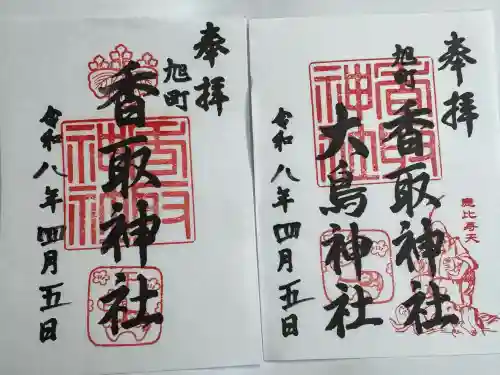 奉拝
旭町
香取神社
令和八年四月五日
奉拝
旭町
香取神社
大鳥神社
令和八年四月五日
恵比寿天